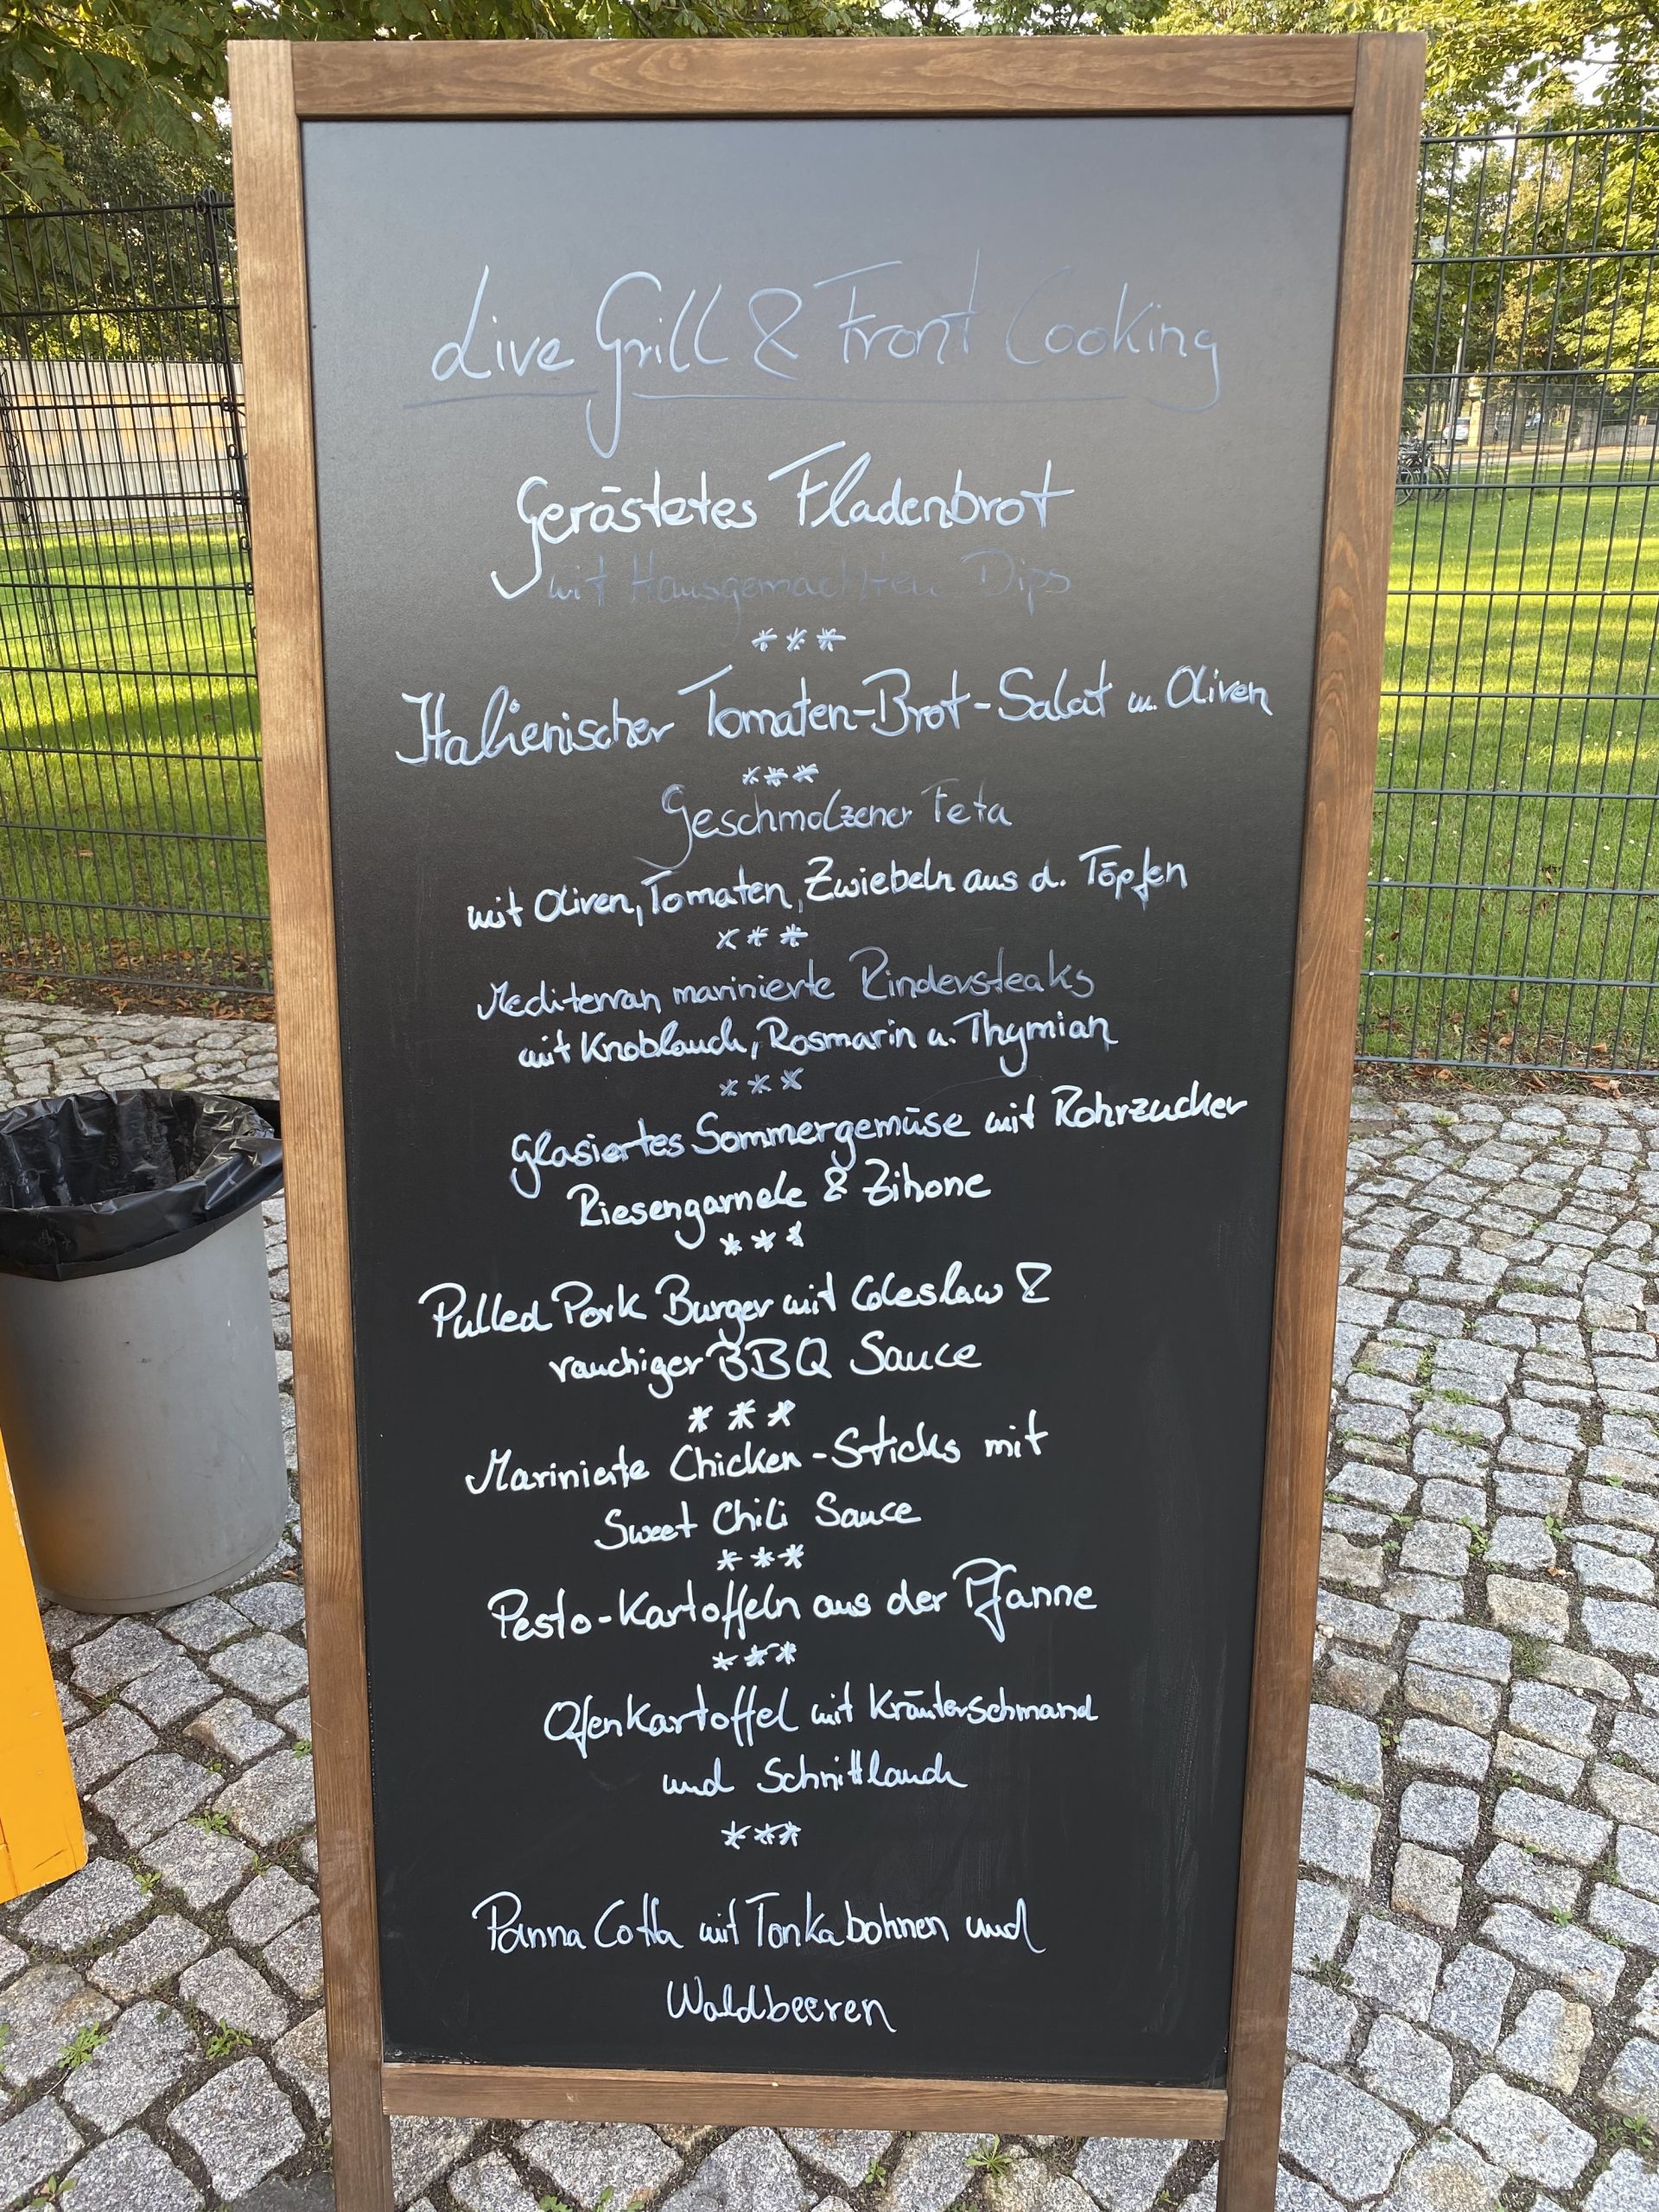 Live Grill & Front Cooking
Geröstetes Fladenbrot
mit Hausgemachten Dips
***
Italienischer Tomaten-Brot-Salat m. Oliven
***
Geschmolzener Feta
mit Oliven, Tomaten, Zwiebeln aus d. Töpfen
***
Mediterran marinierte Rindersteaks
mit Knoblauch, Rosmarin u. Thymian
***
Glasiertes Sommergemüse mit Rohrzucker
Riesengarnele & Zitrone
***
Pulled Pork Burger mit Coleslaw &
rauchiger BBQ Sauce
***
Marinierte Chicken-Sticks mit
Sweet Chili Sauce
***
Pesto-Kartoffeln aus der Pfanne
***
Ofenkartoffel mit Kräuterschmand
und Schnittlauch
***
Panna Cotta mit Tonkabohnen und
Waldbeeren